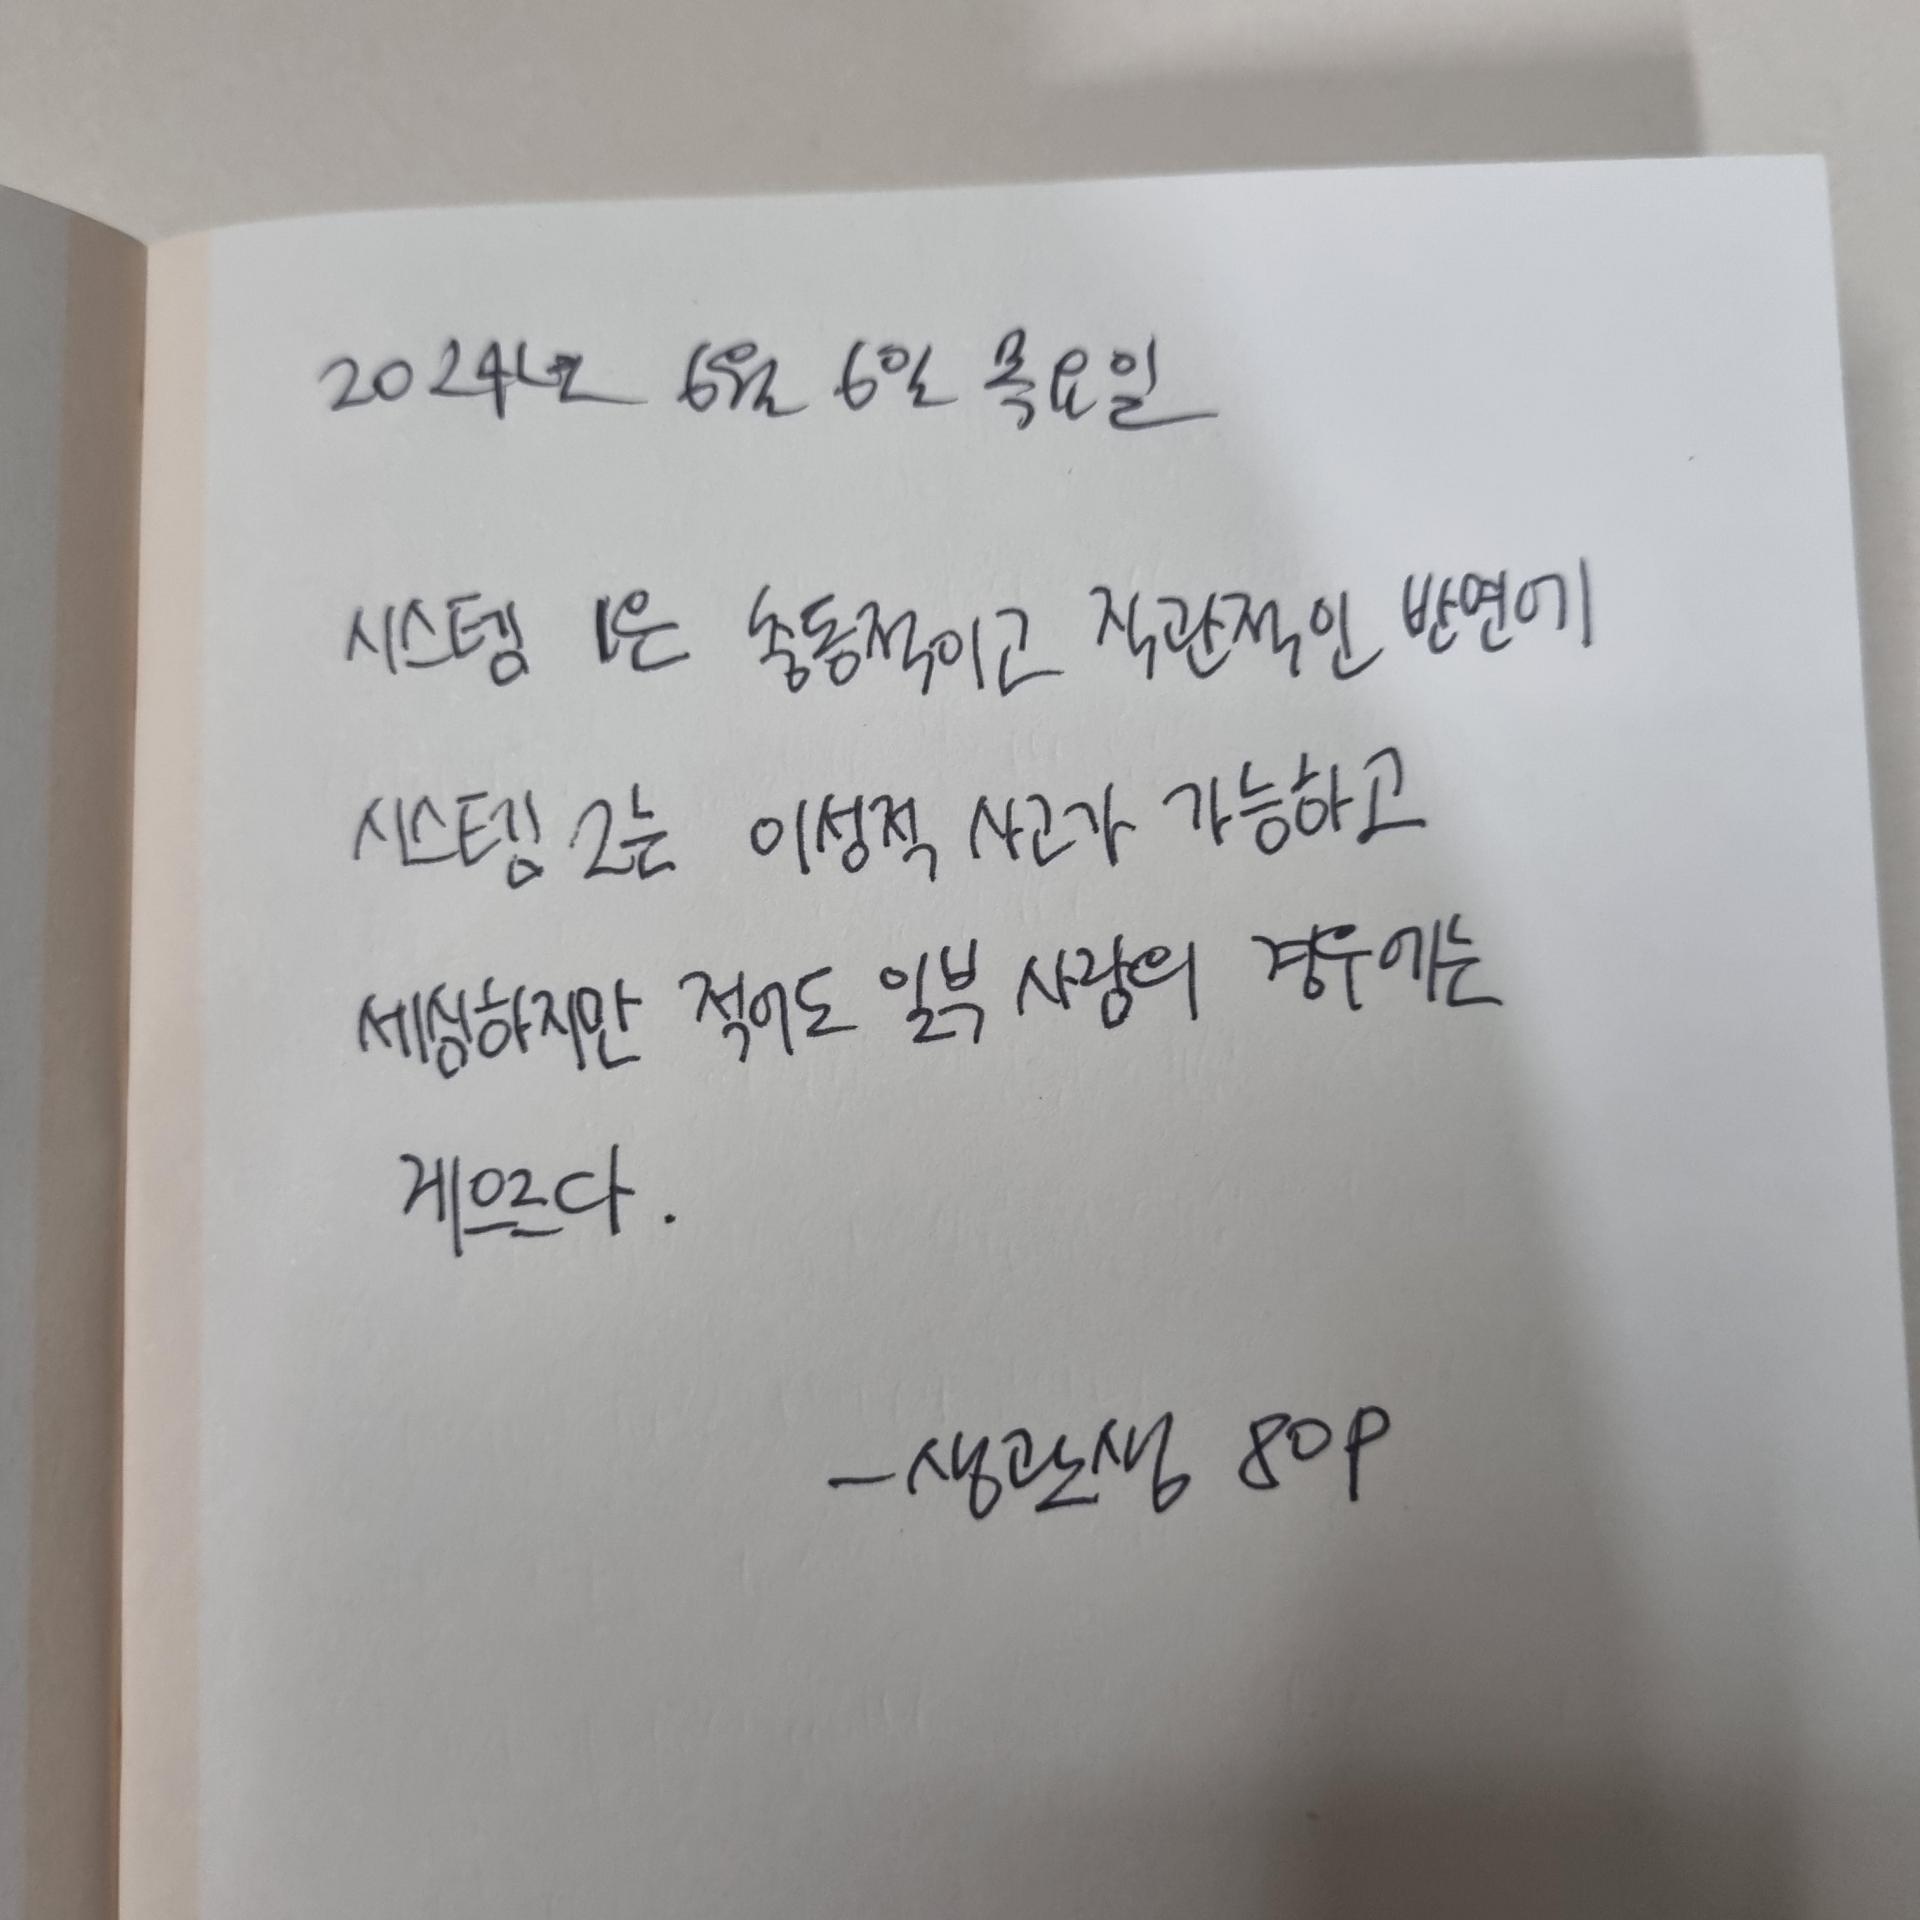 2024년 6월 6일 목요일
시스템 1은 충동적이고 직관적인 반면에
시스템 2는 이성적 사고가 가능하고
세심하지만 적어도 일부 사람의 경우에는
게으르다.
-생관생 80p